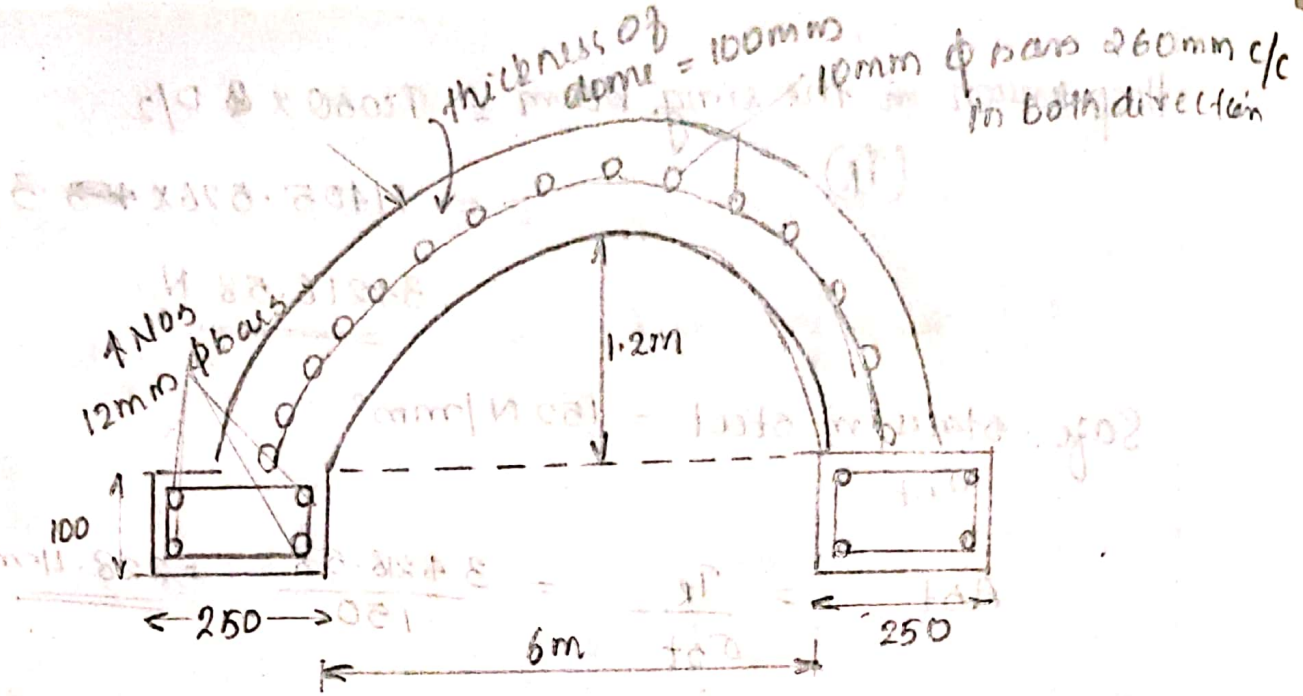 thickness of
dome = 100mm
10mm ϕ bars 260mm c/c
in both direction
4 NOS
12mm ϕ bars
1.2m
100
250
6m
250